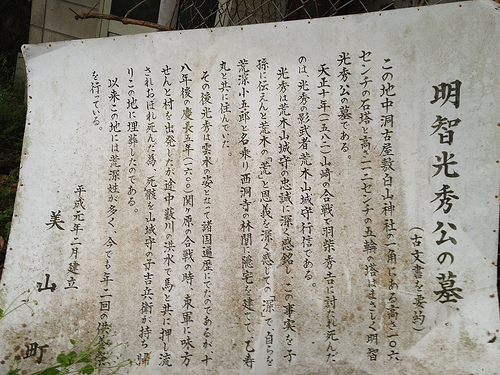 明智光秀公の墓
(古文書を要約)
この地中洞古屋敷白山神社の一角にある高さ一〇六
センチの石塔と高さ一一二センチの五輪の塔はまさしく明智
光秀公の墓である。
天正十年(一五八二)山崎の合戦で羽柴秀吉に討たれ死んだ
のは、光秀の影武者荒木山城守行信である。
光秀は荒木山城守の忠誠に深く感銘し、この事実を子
孫に伝えんと荒木の「荒」と恩義を深く感じての「深」で、自らを
荒深小五郎と名乗り西洞寺の林間に隠宅を建てて、乙寿
丸と共に住んでいた。
その後光秀は雲水の姿となって諸国遍歴にでたのであるが、十
八年後の慶長五年(一六〇〇)関ヶ原の合戦の時、東軍に味方
せんと村を出発したが途中薮川の洪水で馬と共に押し流
されおぼれ死んだ為、死骸を山城守の子吉兵衛が持ち帰
りこの地に埋葬したのである。
以来この地には荒深姓が多く、今でも年二回の供養祭
を行っている。
平成元年二月建立
美山町